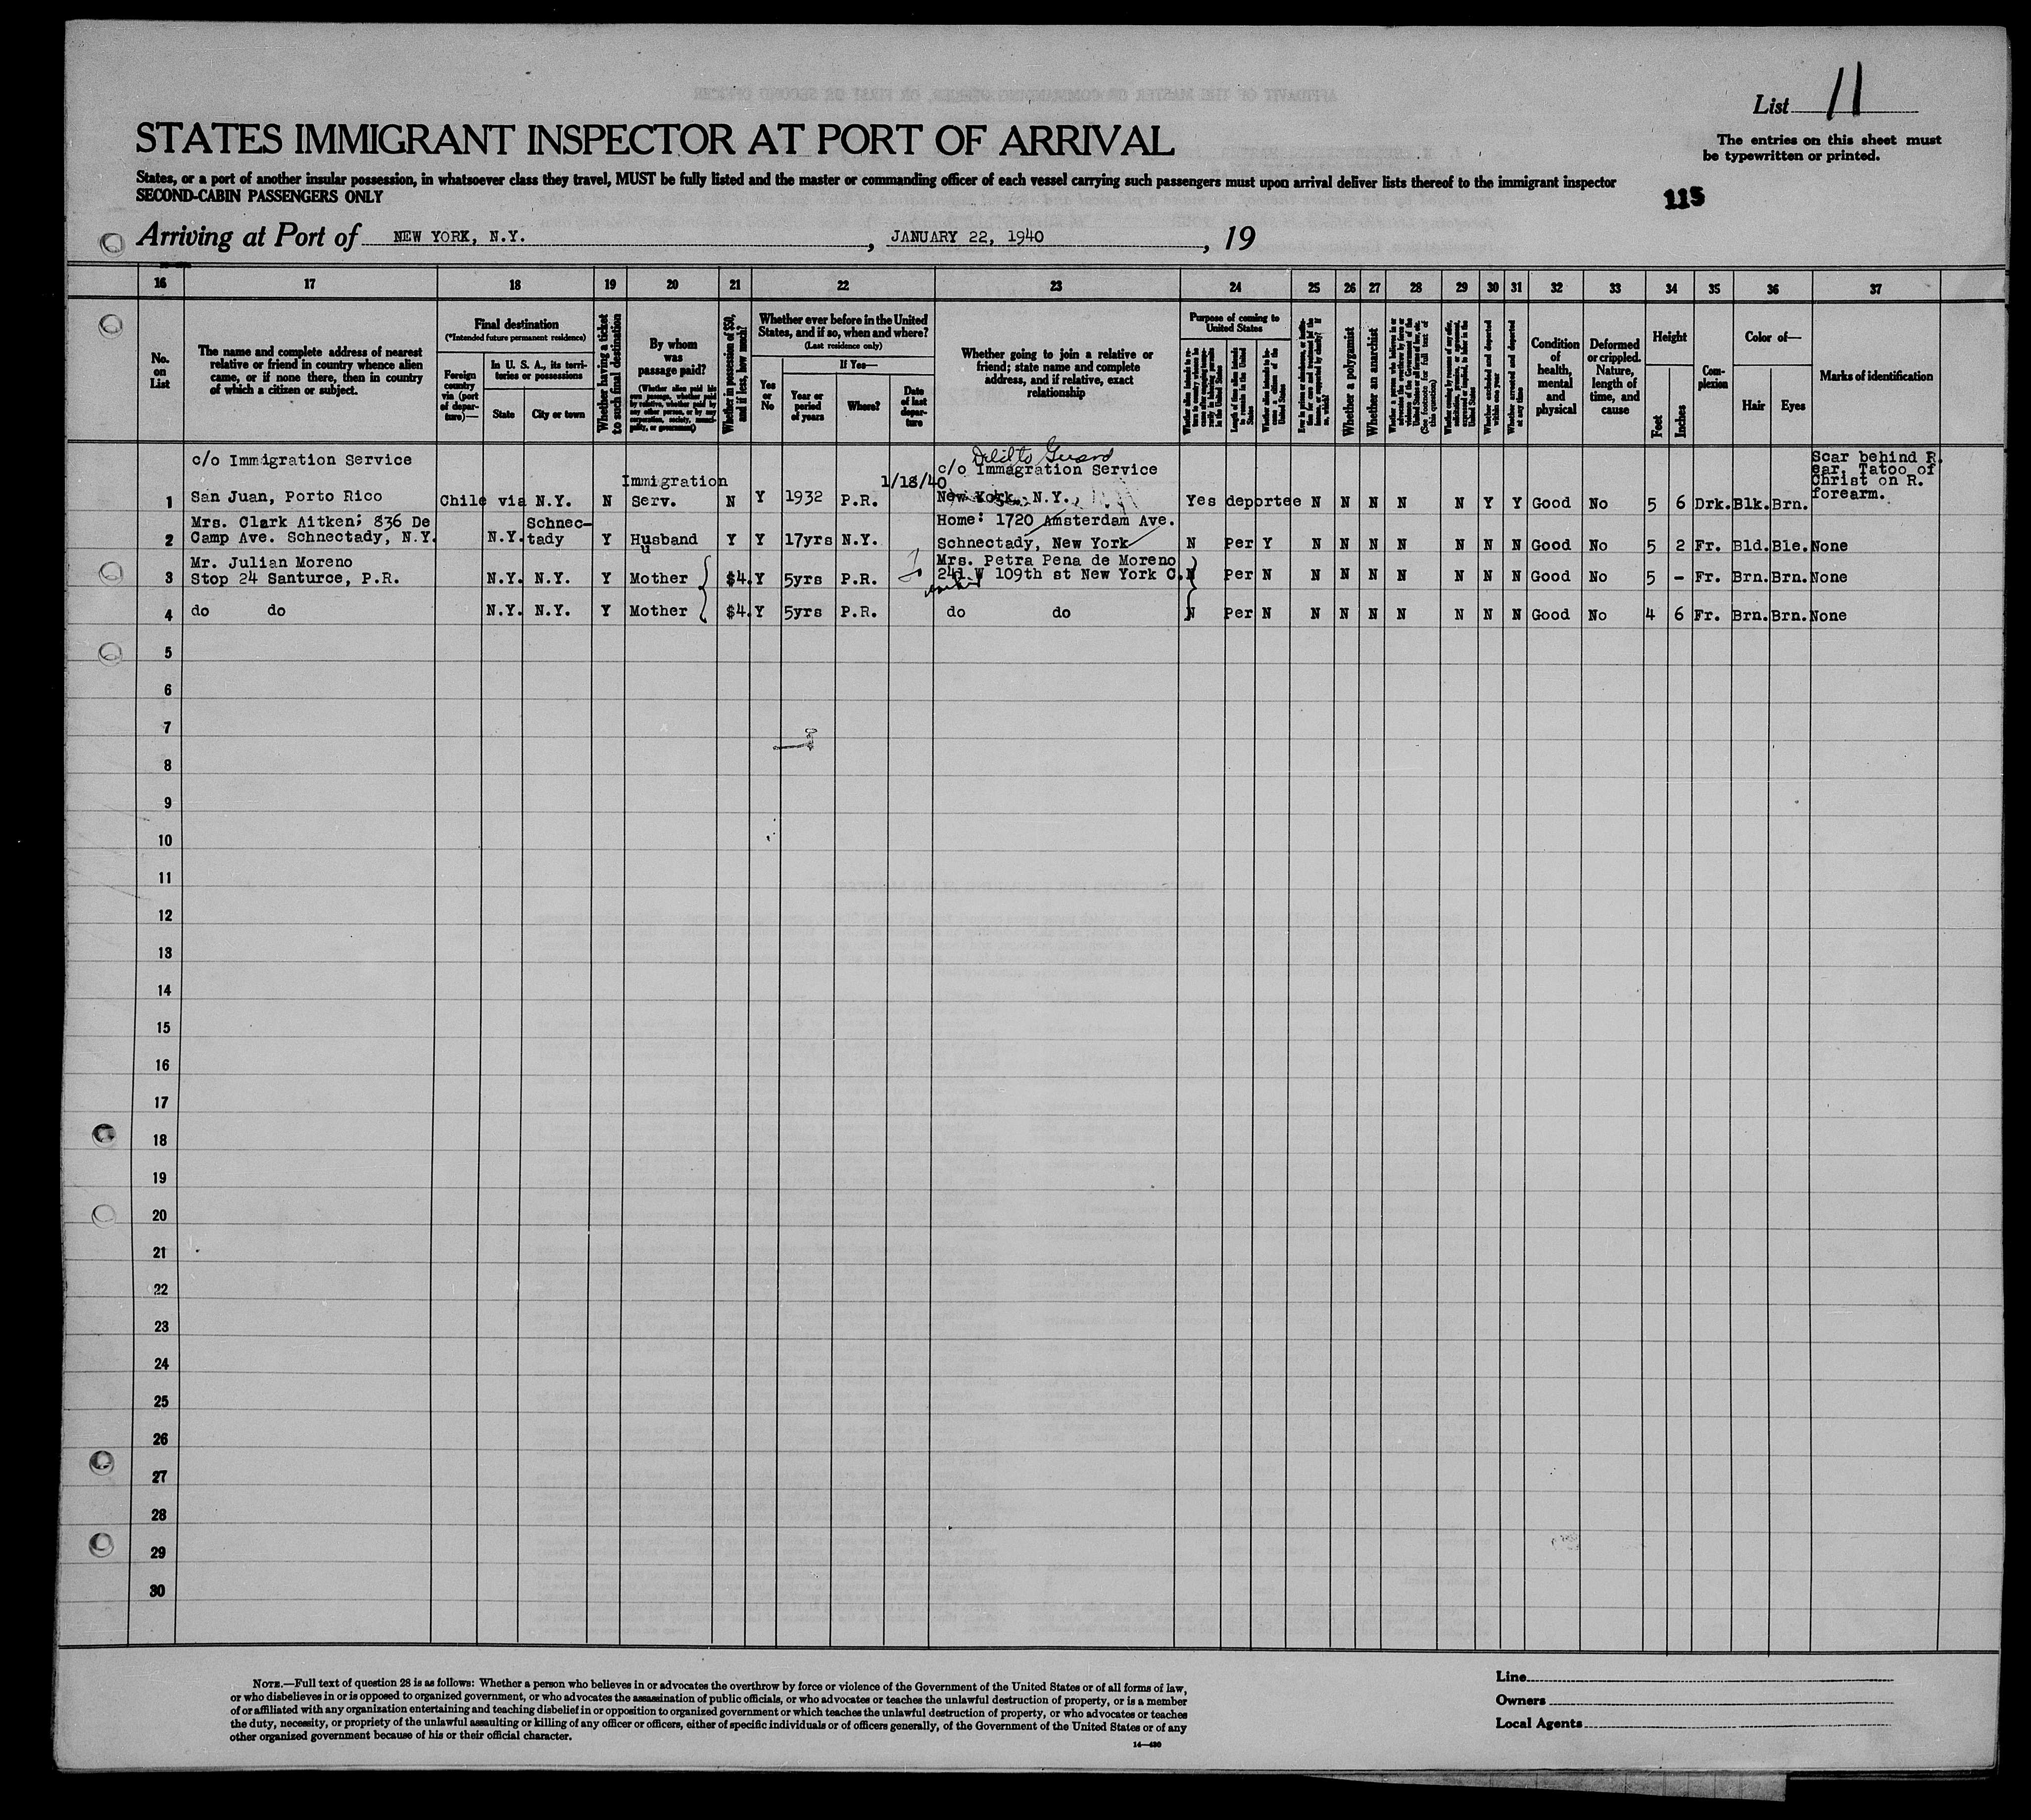 List 11
The entries on this sheet must
be typewritten or printed.
STATES IMMIGRANT INSPECTOR AT PORT OF ARRIVAL
States, or a port of another insular possession, in whatsoever class they travel, MUST be fully listed and the master or commanding officer of each vessel carrying such passengers must upon arrival deliver lists thereof to the immigrant inspector
SECOND-CABIN PASSENGERS ONLY
115
Arriving at Port of NEW YORK, N.Y. , JANUARY 22, 1940 , 19
16 17 18 19 20 21 22 23 24 25 26 27 28 29 30 31 32 33 34 35 36 37
No. on List
The name and complete address of nearest
relative or friend in country whence alien
came, or if none there, then in country
of which a citizen or subject.
Final destination
(*Intended future permanent residence)
Foreign
country
via (port
of depar-
ture)—
In U. S. A., its terri-
tories or possessions
State
City or town
Whether having a ticket
to such final destination
By whom
was
passage paid?
(Whether alien paid his
own passage, whether paid
by relative, whether paid by
any other person, or by any
corporation, society, munici-
pality, or government)
Whether in possession of $50,
and if less, how much?
Whether ever before in the United
States, and if so, when and where?
(Last residence only)
Yes
or
No
If Yes—
Year or
period
of years
Where?
Date
of last
depar-
ture
Whether going to join a relative or
friend; state name and complete
address, and if relative, exact
relationship
Purpose of coming to
United States
Length of time alien intends
to remain in the United
States
Whether a polygamist
Whether an anarchist
(See footnote for full text of
this question)
Whether excluded and deported
within one year
Whether arrested and deported
at any time
Condition
of
health,
mental
and
physical
Deformed
or crippled.
Nature,
length of
time, and
cause
Height
Feet
Inches
Com-
plexion
Color of—
Hair
Eyes
Marks of identification
c/o Immigration Service
1 San Juan, Porto Rico Chile via N.Y. N Immigration Serv. N Y 1932 P.R. 1/18/40 c/o Immagration Service New York, N.Y. Yes deportee N N N N N Y Y Good No 5 6 Drk. Blk. Brn. Scar behind R. ear. Tatoo of Christ on R. forearm.
Guard
Mrs. Clark Aitken; 836 De
2 Camp Ave. Schnectady, N.Y. N.Y. Schnec-tady Y Husband Y Y 17yrs N.Y. Home: 1720 Amsterdam Ave. Schnectady, New York N Per Y N N N N N N N Good No 5 2 Fr. Bld. Ble. None
Mr. Julian Moreno
3 Stop 24 Santurce, P.R. N.Y. N.Y. Y Mother $4. Y 5yrs P.R. Mrs. Petra Pena de Moreno 241 W 109th st New York C. N Per N N N N N N N N Good No 5 - Fr. Brn. Brn. None
4 do do N.Y. N.Y. Y Mother $4. Y 5yrs P.R. do do N Per N N N N N N N N Good No 4 6 Fr. Brn. Brn. None
5
6
7
8
9
10
11
12
13
14
15
16
17
18
19
20
21
22
23
24
25
26
27
28
29
30
NOTE.—Full text of question 28 is as follows: Whether a person who believes in or advocates the overthrow by force or violence of the Government of the United States or of all forms of law,
or who disbelieves in or is opposed to organized government, or who advocates the assassination of public officials, or who advocates or teaches the unlawful destruction of property, or is a member
of or affiliated with any organization entertaining and teaching disbelief in or opposition to organized government or which teaches the unlawful destruction of property, or who advocates or teaches
the duty, necessity, or propriety of the unlawful assaulting or killing of any officer or officers, either of specific individuals or of officers generally, of the Government of the United States or of any
other organized government because of his or their official character.
14—430
Line
Owners
Local Agents